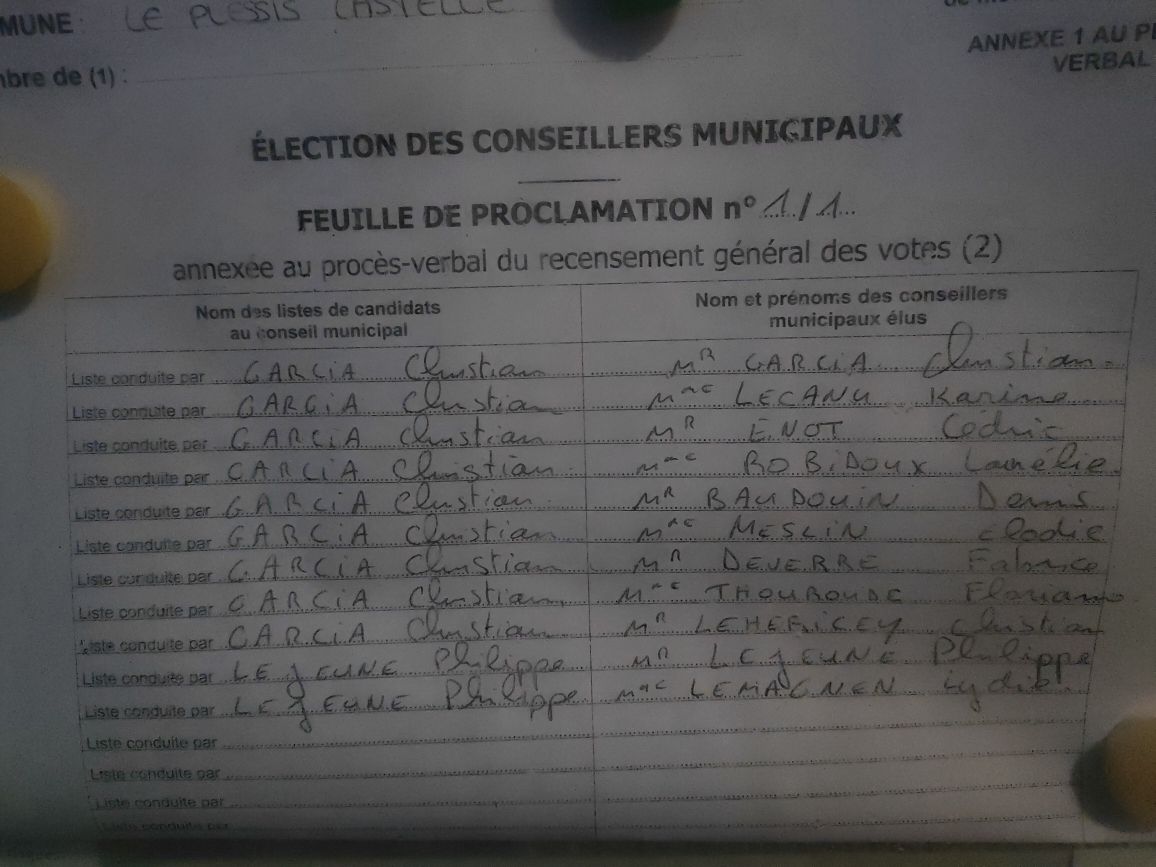 MUNE : LE PLESSIS LASTELLE
ANNEXE 1 AU P
VERBAL
mbre de (1) :
ÉLECTION DES CONSEILLERS MUNICIPAUX
FEUILLE DE PROCLAMATION n° 1/1
annexée au procès-verbal du recensement général des votes (2)
Nom des listes de candidats au conseil municipal
Nom et prénoms des conseillers municipaux élus
Liste conduite par GARCIA Christian MR GARCIA Christian
Liste conduite par GARCIA Christian Mme LECANU Karine
Liste conduite par GARCIA Christian MR ENOT Cédric
Liste conduite par GARCIA Christian Mme ROBIDOUX
Liste conduite par GARCIA Christian MR BAUDOUIN Denis
Liste conduite par GARCIA Christian Mme MESLIN Elodie
Liste conduite par GARCIA Christian MR DEVERRE Fabrice
Liste conduite par GARCIA Christian Mme
Liste conduite par GARCIA Christian MR LEHERICEY Christian
Liste conduite par LEJEUNE Philippe MR LEJEUNE Philippe
Liste conduite par LEJEUNE Philippe Mme LEMAGNEN Lydie
Liste conduite par
Liste conduite par
Liste conduite par
Liste conduite par